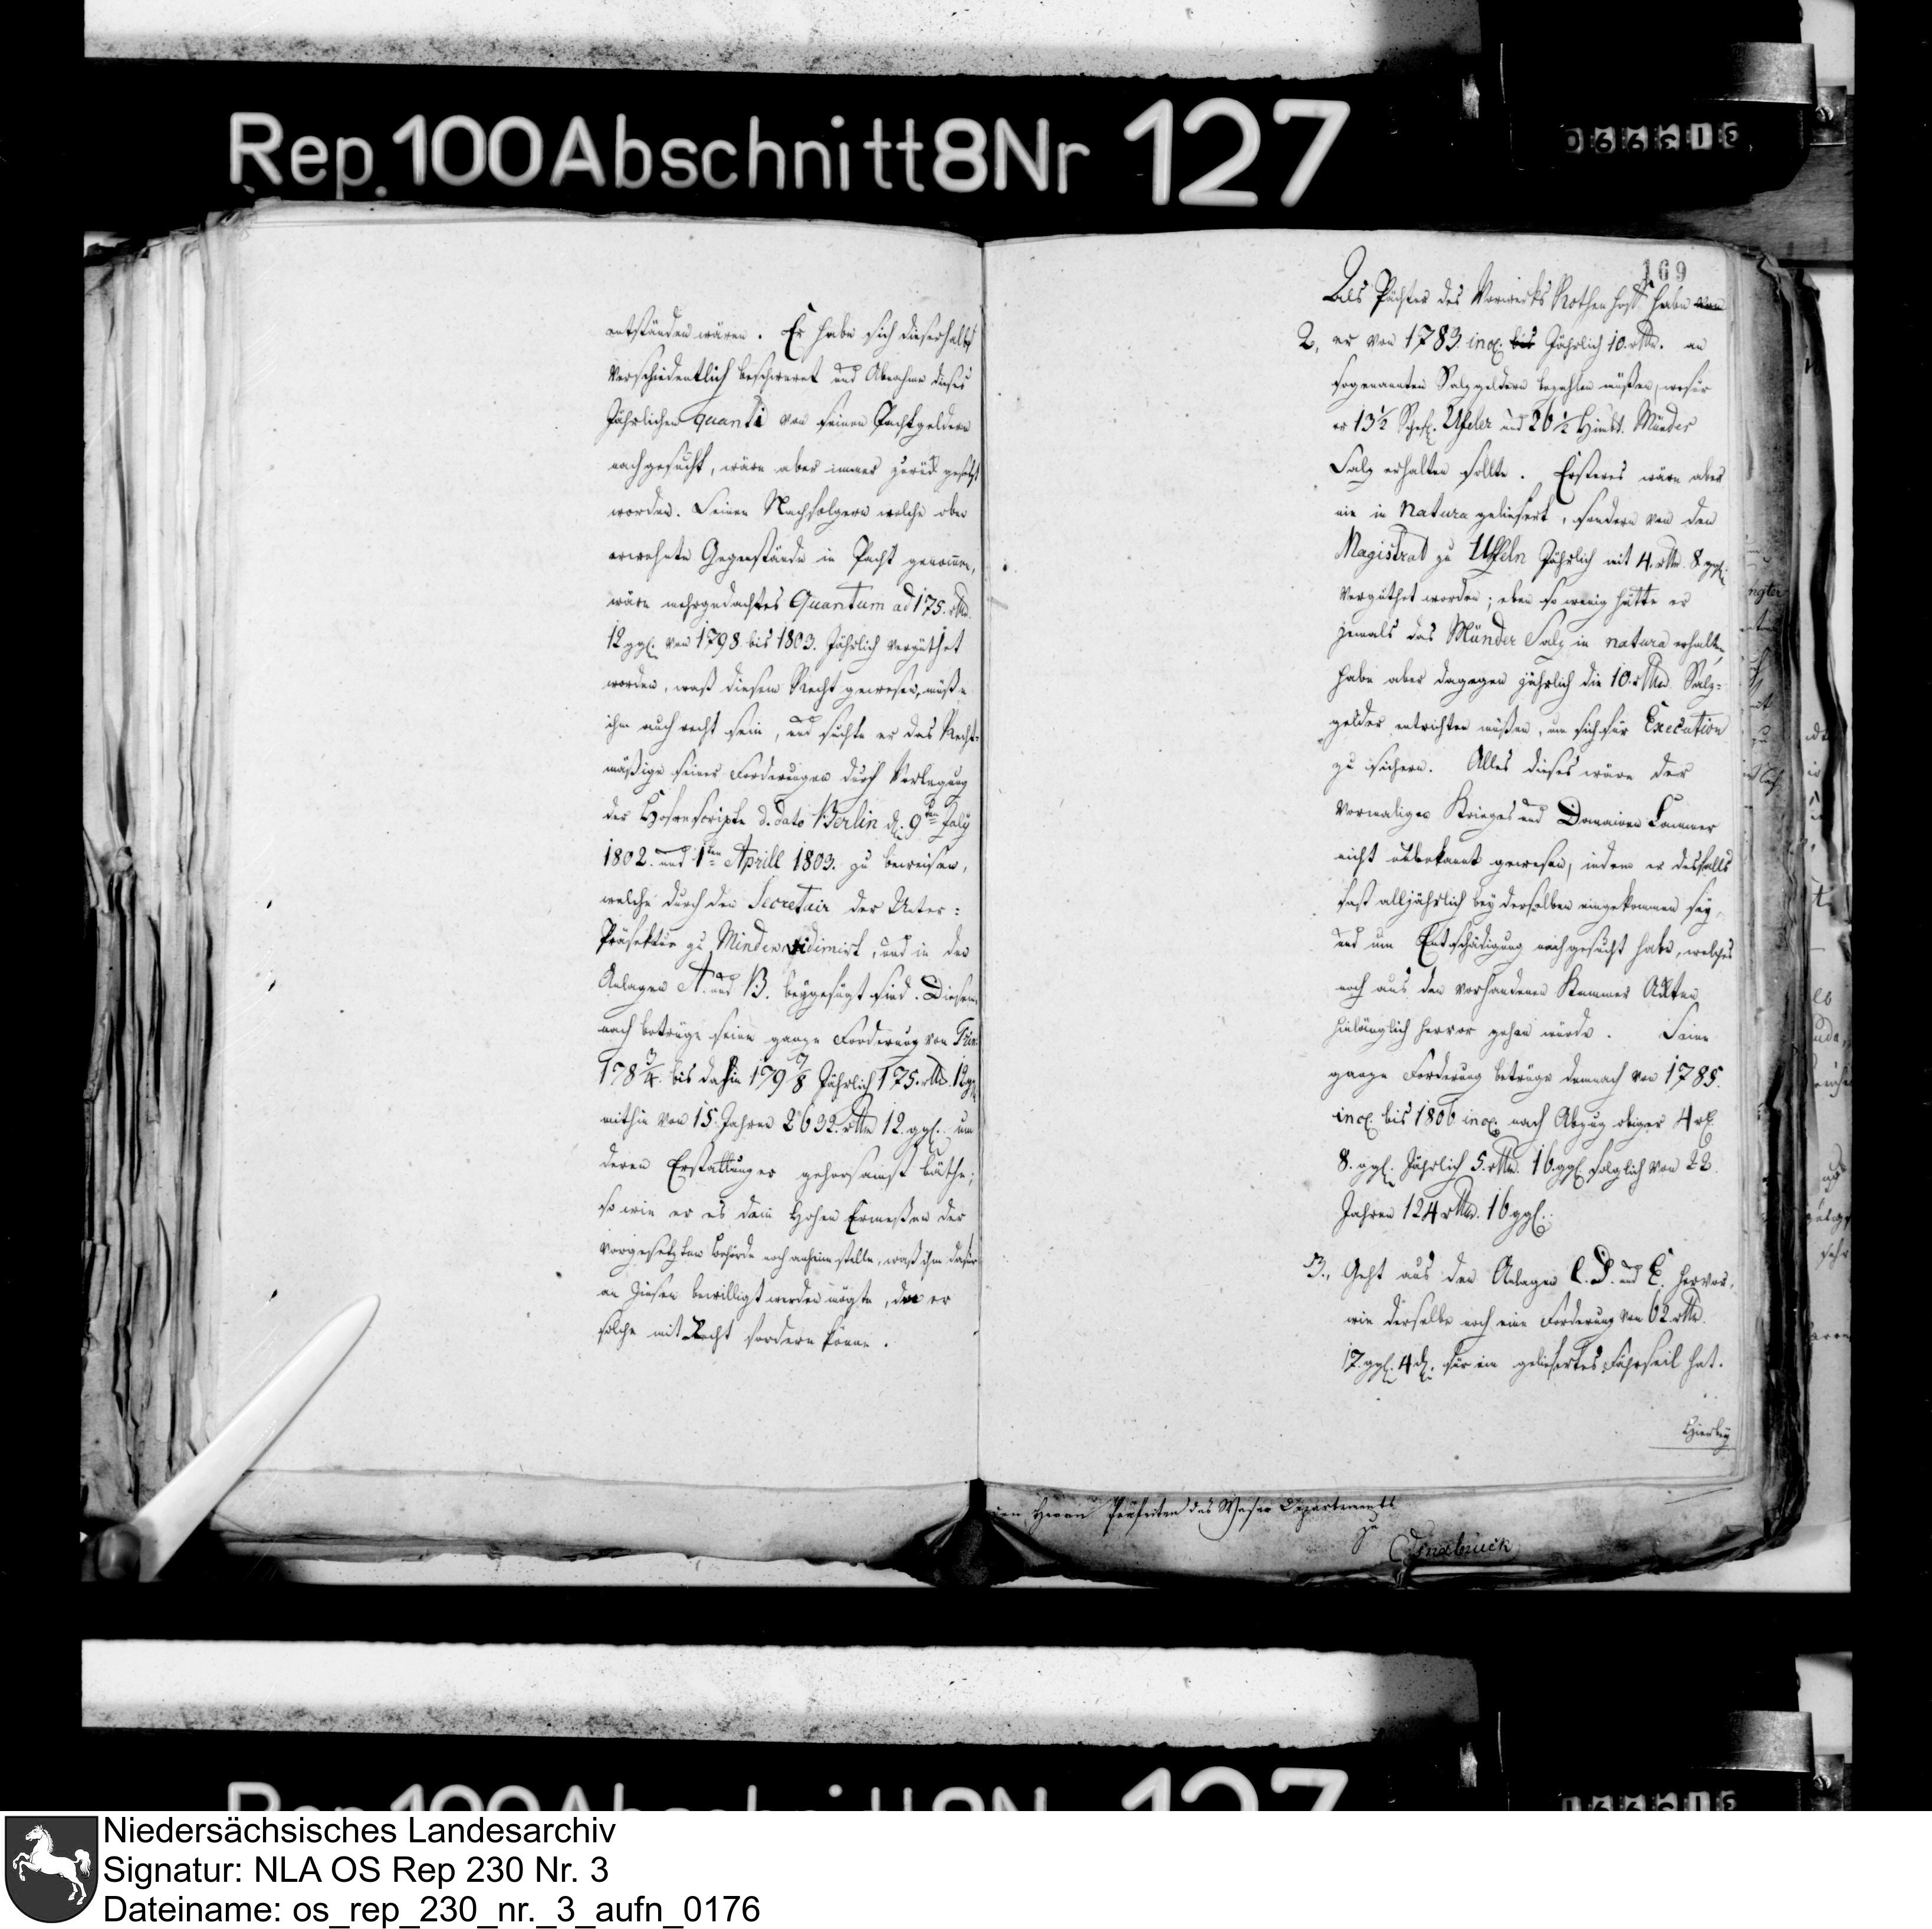 Rep. 100 Abschnitt 8 Nr 127
entständen wären. Er habe sich dieserhalb
verschiedentlich beschweret und Abnahme dieses
Jährlichen quanti von seinen Pachtgeldern
nachgesucht, wäre aber immer zurück gesetzt
worden. Seinen Nachfolgern welche oben
erwehnte Gegenstände in Pacht genommen,
wäre mehrgedachtes Quantum ad 175. rthlr.
12 ggl. von 1798 bis 1803. Jährlich vergüthet
worden, waß diesem Recht gewesen, müße
ihm auch recht sein, und suchte er das Recht-
mäßige seiner Forderungen durch Verlegung
der Hofrescripte d. dato Berlin d. 9ten July
1802. und 1ten Aprill 1803. zu beweisen,
welche durch den Secretair der Unter=
Präfektür zu Minden vidimirt, und in den
Anlagen A. und B. beygefügt sind. Diesem
nach betrüge seine ganze Forderung von Trin:
178 3/4. bis dahin 179 7/8 Jährlich 175. rthlr. 12 ggl.
mithin von 15. Jahren 2632. rthlr 12. ggl. um
deren Erstattung er gehorsamst bäthe;
so wie er es dem Hohen Ermeßen der
vorgesetzten Behörde noch anheim stelle, waß ihm dafür
an Zinsen bewilligt werden mögte, da er
solche mit Recht fordern könne.
169
Als Pächter des Vorwerks Rothenhoff habe
2, er von 1783. incl. bis Jährlich 10. rthlr. an
sogenannten Salzgeldern bezahlen müßen, wofür
er 13 1/2 Schfl. Ufeler und 26 1/2 Himbt. Münder
Salz erhalten sollte. Ersteres wäre aber
nie in Natura geliefert, sondern von den
Magistrat zu Uffeln Jährlich mit 4. rthlr. 8. ggl.
vergüthet worden; eben so wenig hätte er
jemals das Münder Salz in natura erhalten,
habe aber dagegen jährlich die 10. rthlr. Salz=
gelder entrichten müßen, um sich für Execution
zu sichern. Alles dieses wäre der
vormaligen Krieges und Domainen Cammer
nicht unbekannt gewesen, indem er desfalls
fast alljährlich bey derselben eingekommen sey,
und um Entschädigung nachgesucht habe, welches
noch aus den vorhandenen Kammer Akten
hinlänglich hervor gehen würde. Seine
ganze Forderung betrüge demnach von 1785.
incl. bis 1806 incl. nach Abzug obiger 4 rtl.
8. ggl. Jährlich 5. rthlr. 16. ggl. folglich von 22.
Jahren 124 rthlr. 16 ggl.
3., Geht aus den Anlagen C. D. und E. hervor,
wie derselbe noch eine Forderung von 62. rthlr.
17. ggl. 4 d. für ein geliefertes Fährseil hat.
Hierbey
den Herrn Präfecten des Weser Departements
zu
Osnabrück
Niedersächsisches Landesarchiv
Signatur: NLA OS Rep 230 Nr. 3
Dateiname: os_rep_230_nr._3_aufn_0176